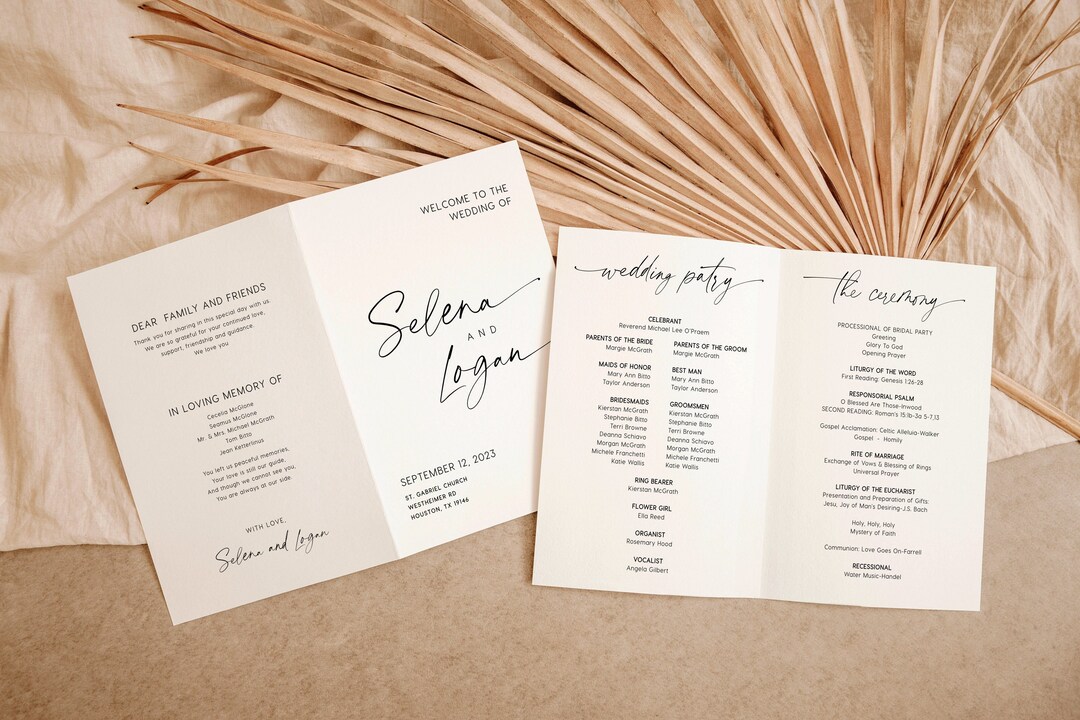 DEAR FAMILY AND FRIENDS
Thank you for sharing in this special day with us.
We are so grateful for your continued love,
support, friendship and guidance.
We love you
IN LOVING MEMORY OF
Cecelia McGlone
Seamus McGlone
Mr. & Mrs. Michael McGrath
Tom Bitto
Jean Ketterlinus
You left us peaceful memories,
Your love is still our guide,
And though we cannot see you,
You are always at our side.
WITH LOVE,
Selena and Logan
WELCOME TO THE
WEDDING OF
Selena
AND
Logan
SEPTEMBER 12, 2023
ST. GABRIEL CHURCH
WESTHEIMER RD
HOUSTON, TX 19146
wedding patry
CELEBRANT
Reverend Michael Lee O'Praem
PARENTS OF THE BRIDE
Margie McGrath
PARENTS OF THE GROOM
Margie McGrath
MAIDS OF HONOR
Mary Ann Bitto
Taylor Anderson
BEST MAN
Mary Ann Bitto
Taylor Anderson
BRIDESMAIDS
Kierstan McGrath
Stephanie Bitto
Terri Browne
Deanna Schiavo
Morgan McGrath
Michele Franchetti
Katie Wallis
GROOMSMEN
Kierstan McGrath
Stephanie Bitto
Terri Browne
Deanna Schiavo
Morgan McGrath
Michele Franchetti
Katie Wallis
RING BEARER
Kierstan McGrath
FLOWER GIRL
Ella Reed
ORGANIST
Rosemary Hood
VOCALIST
Angela Gilbert
the ceremony
PROCESSIONAL OF BRIDAL PARTY
Greeting
Glory To God
Opening Prayer
LITURGY OF THE WORD
First Reading: Genesis 1:26-28
RESPONSORIAL PSALM
O Blessed Are Those-Inwood
SECOND READING: Roman's 15:1b-3a 5-7,13
Gospel Acclamation: Celtic Alleluia-Walker
Gospel - Homily
RITE OF MARRIAGE
Exchange of Vows & Blessing of Rings
Universal Prayer
LITURGY OF THE EUCHARIST
Presentation and Preparation of Gifts:
Jesu, Joy of Man's Desiring-J.S. Bach
Holy, Holy, Holy
Mystery of Faith
Communion: Love Goes On-Farrell
RECESSIONAL
Water Music-Handel